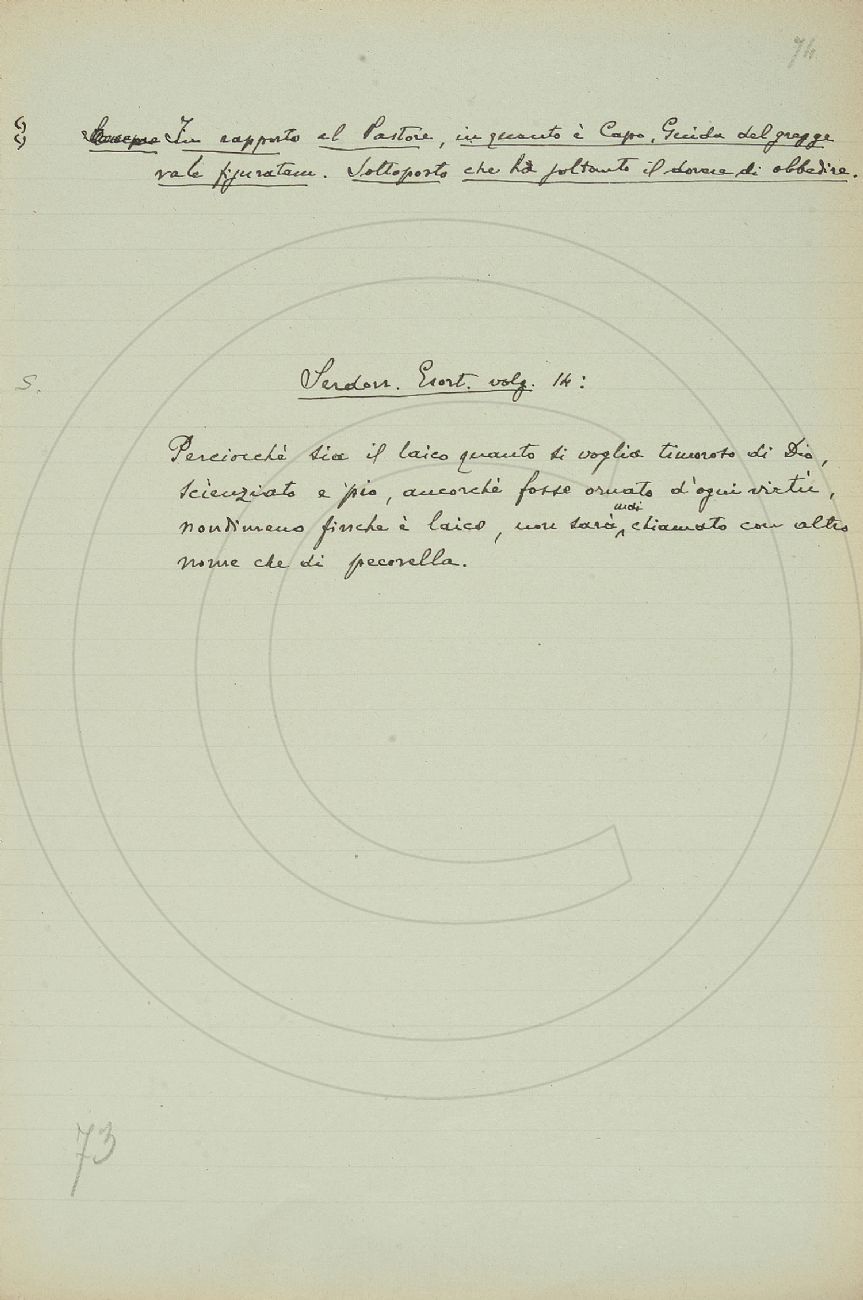 74
§ In rapporto al Pastore, in quanto è Capo, Guida del gregge
vale figuratam. Sottoposto che ha soltanto il dovere di obbedire.
S. Serdon. Esort. volg. 14:
Perciocchè sia il laico quanto si voglia timoroso di Dio,
scïenziato e pio, ancorchè fosse ornato d'ogni virtù,
nondimeno finche è laico, non sarà mai chiamato con altro
nome che di pecorella.
73